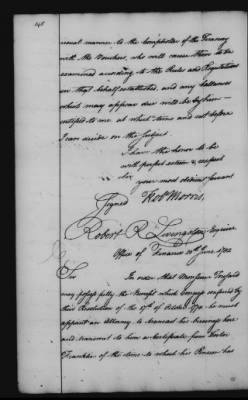 usual manner to the Comptroller of the Treasury
with the Vouchers, who will cause them to be
examined according to the Rules and Regulations
in that behalf established, and any ballances
which may appear due will be by him
certifyed to me at which time and not before
I can decide on the Subject.
I have the honor to be
with perfect esteem & respect
your most obedient servant
Signed Robt Morris,
Robert R Livingston Esquire
Office of Finance 20th June 1782
Sir
In order that Monsieur
may possess fully the Benefit which Congress conferred by
their Resolution of the 17th of October 1780 he must
appoint an Attorney to transact his business here
and transmit to him a Certificate from Doctor
Franklin of the time to which his Pension has